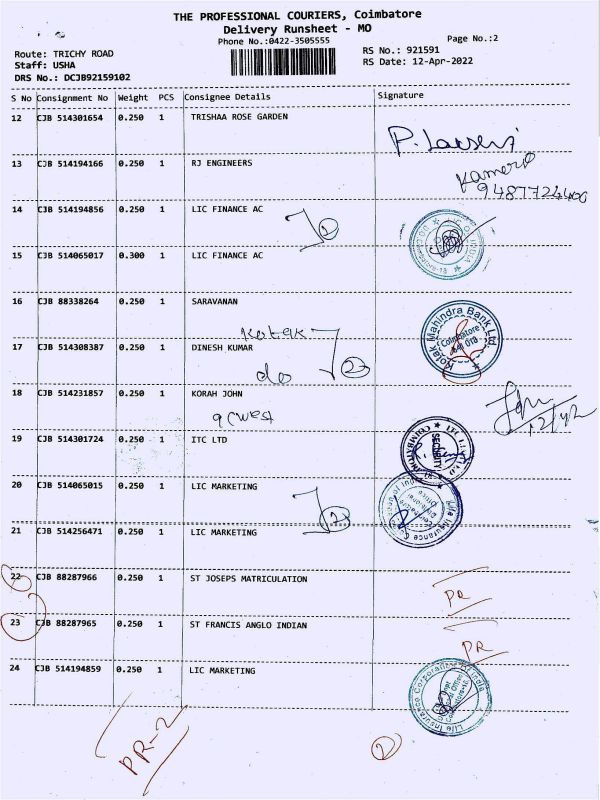 THE PROFESSIONAL COURIERS, Coimbatore
Delivery Runsheet - MO
Phone No.:0422-3505555
Page No.:2
Route: TRICHY ROAD
Staff: USHA
DRS No.: DCJB92159102
RS No.: 921591
RS Date: 12-Apr-2022
S No Consignment No Weight PCS Consignee Details Signature
12 CJB 514301654 0.250 1 TRISHAA ROSE GARDEN
13 CJB 514194166 0.250 1 RJ ENGINEERS
9487724400
14 CJB 514194856 0.250 1 LIC FINANCE AC
2
15 CJB 514065017 0.300 1 LIC FINANCE AC
16 CJB 88338264 0.250 1 SARAVANAN
Kotak Mahindra Bank Ltd.
Coimbatore
641 018
kotak
17 CJB 514308387 0.250 1 DINESH KUMAR
do
2
18 CJB 514231857 0.250 1 KORAH JOHN
12/4/22
19 CJB 514301724 0.250 1 ITC LTD
SECURITY
20 CJB 514065015 0.250 1 LIC MARKETING
2
21 CJB 514256471 0.250 1 LIC MARKETING
22 CJB 88287966 0.250 1 ST JOSEPS MATRICULATION
PR
23 CJB 88287965 0.250 1 ST FRANCIS ANGLO INDIAN
PR
24 CJB 514194859 0.250 1 LIC MARKETING
Life Insurance Corporation of India
PR-2
2